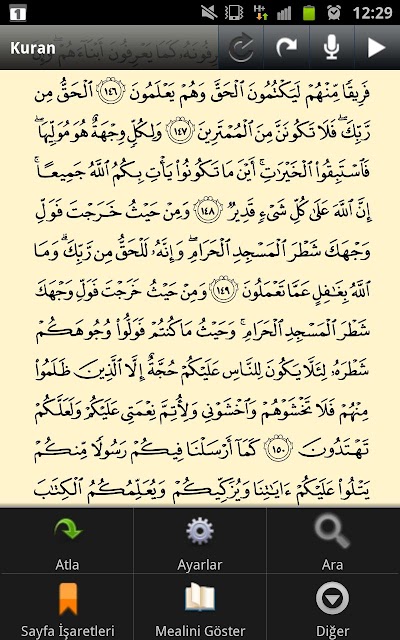 1 12:29
Kuran
رِفُونَهُۥ كَمَا يَعۡرِفُونَ أَبۡنَآءَهُمۡۖ وَإِنَّ
فَرِيقٗا مِّنۡهُمۡ لَيَكۡتُمُونَ ٱلۡحَقَّ وَهُمۡ يَعۡلَمُونَ ١٤٦ ٱلۡحَقُّ مِن
رَّبِّكَ فَلَا تَكُونَنَّ مِنَ ٱلۡمُمۡتَرِينَ ١٤٧ وَلِكُلّٖ وِجۡهَةٌ هُوَ مُوَلِّيهَاۖ
فَٱسۡتَبِقُواْ ٱلۡخَيۡرَٰتِۚ أَيۡنَ مَا تَكُونُواْ يَأۡتِ بِكُمُ ٱللَّهُ جَمِيعًاۚ
إِنَّ ٱللَّهَ عَلَىٰ كُلِّ شَيۡءٖ قَدِيرٞ ١٤٨ وَمِنۡ حَيۡثُ خَرَجۡتَ فَوَلِّ
وَجۡهَكَ شَطۡرَ ٱلۡمَسۡجِدِ ٱلۡحَرَامِۖ وَإِنَّهُۥ لَلۡحَقُّ مِن رَّبِّكَۗ وَمَا
ٱللَّهُ بِغَٰفِلٍ عَمَّا تَعۡمَلُونَ ١٤٩ وَمِنۡ حَيۡثُ خَرَجۡتَ فَوَلِّ وَجۡهَكَ
شَطۡرَ ٱلۡمَسۡجِدِ ٱلۡحَرَامِۚ وَحَيۡثُ مَا كُنتُمۡ فَوَلُّواْ وُجُوهَكُمۡ
شَطۡرَهُۥ لِئَلَّا يَكُونَ لِلنَّاسِ عَلَيۡكُمۡ حُجَّةٌ إِلَّا ٱلَّذِينَ ظَلَمُواْ
مِنۡهُمۡ فَلَا تَخۡشَوۡهُمۡ وَٱخۡشَوۡنِي وَلِأُتِمَّ نِعۡمَتِي عَلَيۡكُمۡ وَلَعَلَّكُمۡ
تَهۡتَدُونَ ١٥٠ كَمَآ أَرۡسَلۡنَا فِيكُمۡ رَسُولٗا مِّنكُمۡ
يَتۡلُواْ عَلَيۡكُمۡ ءَايَٰتِنَا وَيُزَكِّيكُمۡ وَيُعَلِّمُكُمُ ٱلۡكِتَٰبَ
Atla Ayarlar Ara
Sayfa İşaretleri Mealini Göster Diğer